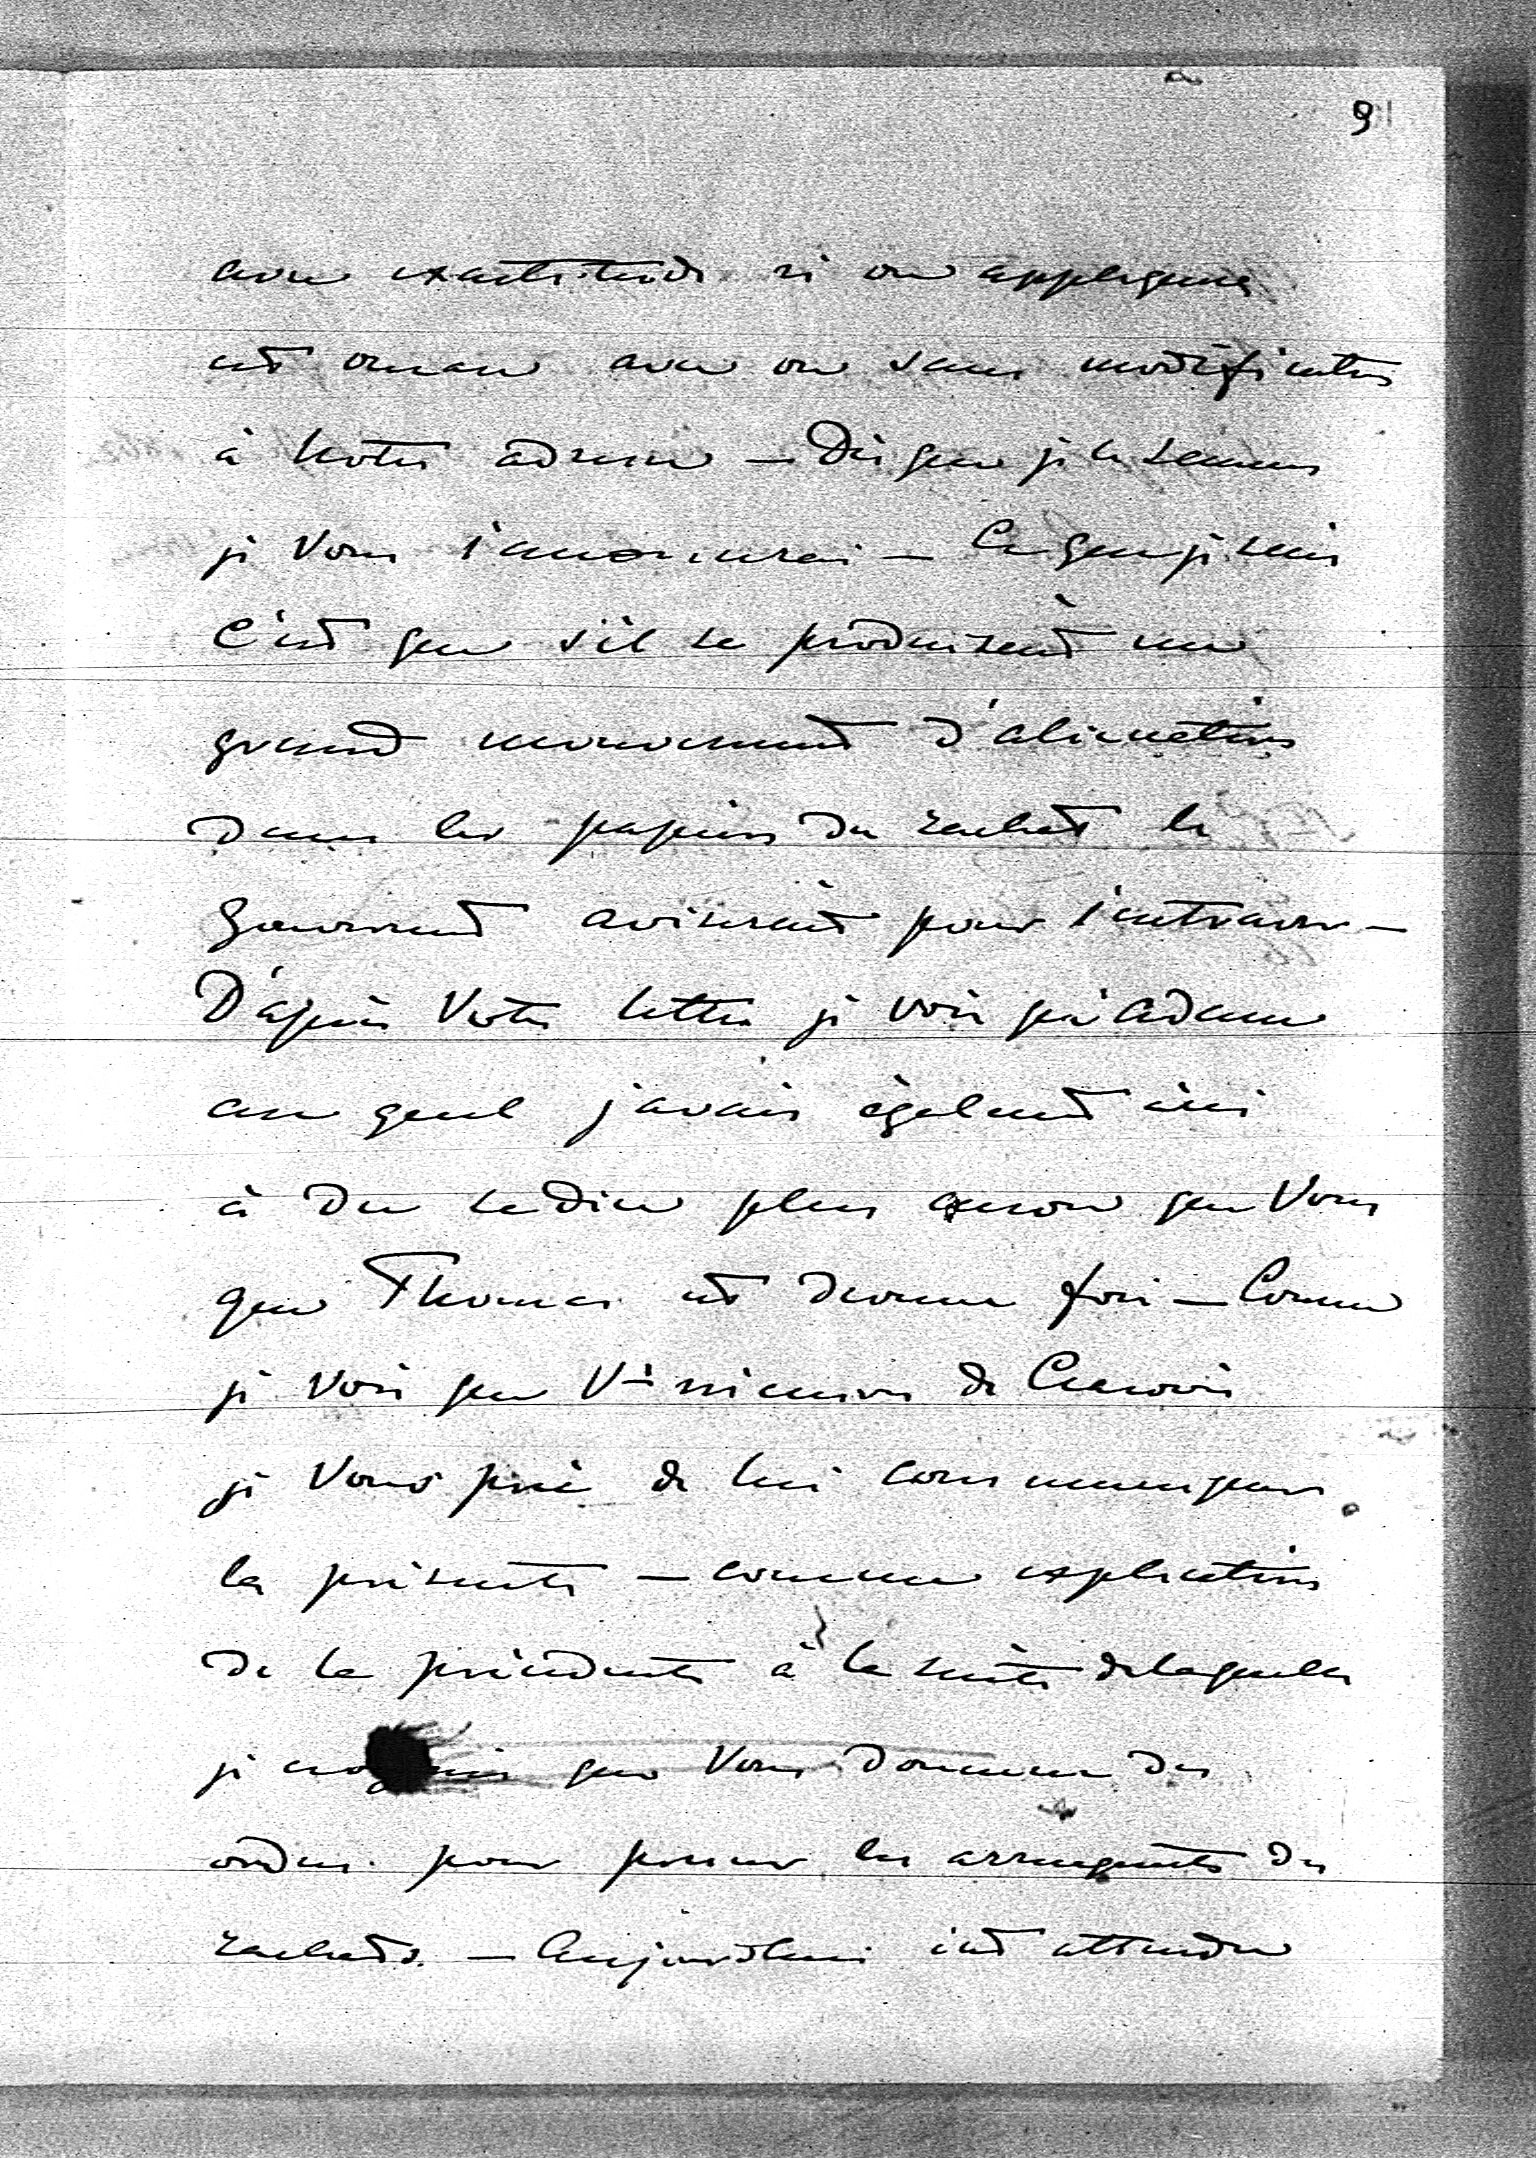 9
avec exactitude si on appliquera
cet oukase avec ou sans modification
à notre adresse — Dès que je le saurai
je vous l'annoncerai — Ce que je sais
c'est que s'il se produisait un
grand mouvement d'aliénation
dans les papiers du rachat le
Gouvernemt aviserait pour l'entraver —
D'après Votre lettre je vois qu'Adam
au quel j'avais égalemt écri
à du se dire plus encore que Vous
que Thomas et donne foi — Comme
je vois que Vs
de Cracovie
je Vous prie de lui communiquer
la présente — comme explication
de la précédente à la suite de laquelle
je croyais que Vous donneriez des
ordres pour presser les arrangemts des
rachats. — Aujourdhui
attendu